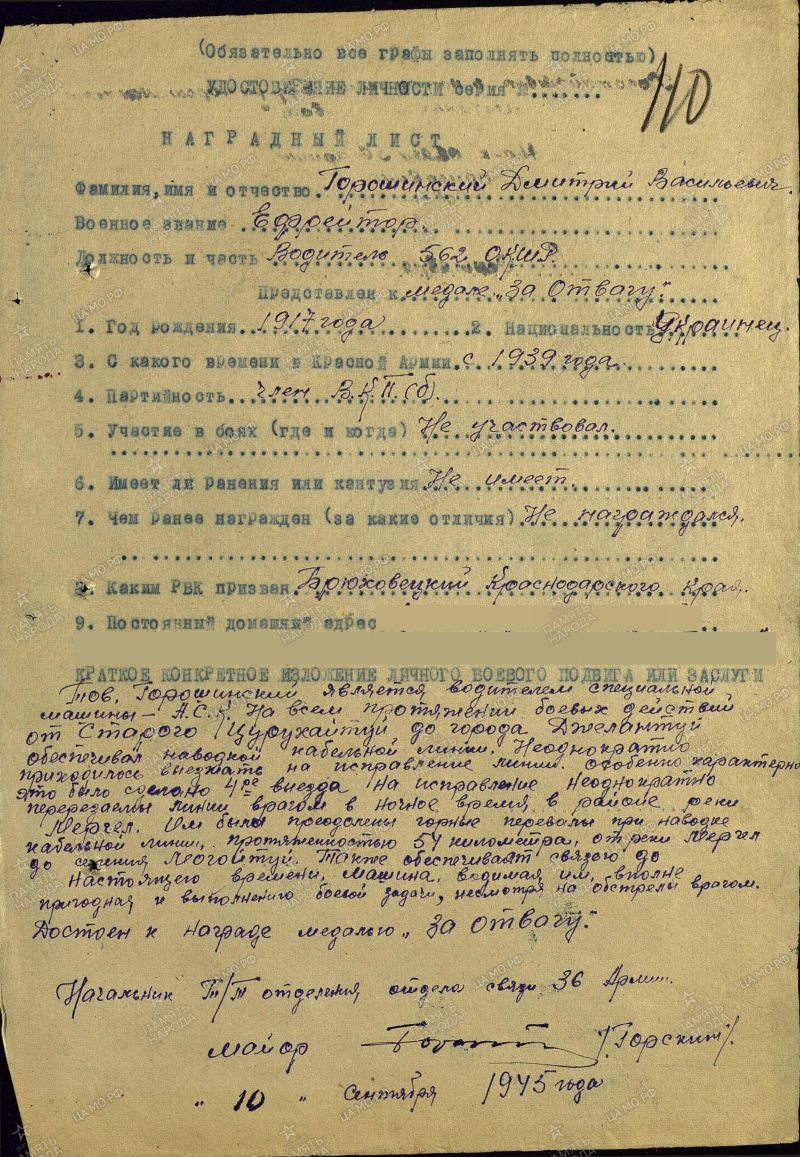 (Обязательно все графы заполнять полностью)
УДОСТОВЕРЕНИЕ ЛИЧНОСТИ серия №.......
110
НАГРАДНЫЙ ЛИСТ
Фамилия, имя и отчество Горошинский Дмитрий Васильевич.
Военное звание Ефрейтор.
Должность и часть Водитель 562 ОКШР
Представлен к медале „За Отвагу".
1. Год рождения 1917 года 2. Национальность Украинец.
3. С какого времени в Красной Армии с 1939 года.
4. Партийность член В.К.П.(б).
5. Участие в боях (где и когда) Не участвовал.
6. Имеет ли ранения или кантузия Не имеет.
7. Чем ранее награжден (за какие отличия) Не награждался.
8. Каким РВК призван Брюховецкий Краснодарского края.
9. Постоянный домашний адрес
КРАТКОЕ КОНКРЕТНОЕ ИЗЛОЖЕНИЕ ЛИЧНОГО БОЕВОГО ПОДВИГА ИЛИ ЗАСЛУГИ
Тов. Горошинский является водителем специальной
машины – А.С.К. На всем протяжении боевых действий
от Старого Цурухайтуй до города Джелантуй
обеспечивал наводкой кабельной линии. Неоднократно
приходилось выезжать на исправление линии. Особенно характерно
это было сделано 4ре выезда на исправление неоднократно
перерезаемы линии врагом в ночное время в районе реки
Мергел. Им были преодолены горные перевалы при наводке
кабельной линии, протяженностью 54 километра, от реки Мергел
до селения Могойтуй. Также обеспечивает связью до
настоящего времени, машина, водимая им, вполне
пригодная к выполнению боевой задачи, несмотря на обстрелы врагом.
Достоен к награде медалью „За Отвагу".
Начальник Т/Т отделения отдела связи 36 Армии.
майор /Горский/.
„10" сентября 1945 года